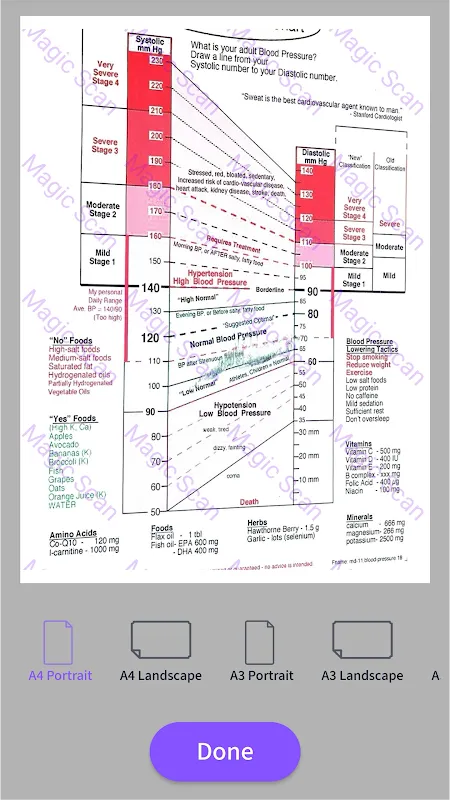 Systolic
mm Hg
What is your adult Blood Pressure?
Draw a line from your
Systolic number to your Diastolic number.
"Sweat is the best cardiovascular agent known to man."
- Stanford Cardiologist
Very
Severe
Stage 4
Severe
Stage 3
Moderate
Stage 2
Mild
Stage 1
230
220
210
200
190
180
170
160
150
140
120
110
100
90
80
70
60
50
Diastolic
mm Hg
"New"
Classification
Old
Classification
140
130
120
110
100
95
90
85
80
75
70
65
60
35
30 mm
20 mm
10 mm
Very
Severe
Stage 4
Severe
Stage 3
Moderate
Stage 2
Mild
Stage 1
Severe
Moderate
Mild
Stressed, red, bloated, sedentary,
Increased risk of cardio-vascular disease,
heart attack, kidney disease, stroke, death,
Requires Treatment
Morning BP, or AFTER salty, fatty food
Hypertension
High Blood Pressure
Borderline
"High Normal"
Evening BP, or Before salty, fatty food
"Suggested Optimal"
Normal Blood Pressure
BP after Strenuous
"Low Normal"
Athletes, Children = Normal
Hypotension
Low Blood Pressure
weak, tired
dizzy, fainting
coma
Death
My personal
Daily Range
Ave. BP = 140/90
(Too high)
"No" Foods
High-salt foods
Medium-salt foods
Saturated fat
Hydrogenated oils
Partially Hydrogenated
Vegetable Oils
"Yes" Foods
(High K, Ca)
Apples
Avocado
Bananas (K)
Broccoli (K)
Fish
Grapes
Oats
Orange Juice (K)
WATER
Blood Pressure
Lowering Tactics
Stop smoking
Reduce weight
Exercise
Low salt foods
Low protein
No caffeine
Mild sedation
Sufficient rest
Don't oversleep
Vitamins
Vitamin C - 500 mg
Vitamin D - 400 IU
Vitamin E - 200 mg
B complex - xxx mg
Folic Acid - 400 µg
Niacin - 100 mg
Minerals
calcium - 666 mg
magnesium - 266 mg
potassium - 2500 mg
Amino Acids
Co-Q10 - 120 mg
l-carnitine - 1000 mg
Foods
Flax oil - 1 tbl
Fish oil- EPA 600 mg
- DHA 400 mg
Herbs
Hawthorne Berry - 1.5 g
Garlic - lots (selenium)
guaranteed - no advice is intended
Fname: md-11 blood-pressure 18
Magic Scan
A4 Portrait
A4 Landscape
A3 Portrait
A3 Landscape
A
Done